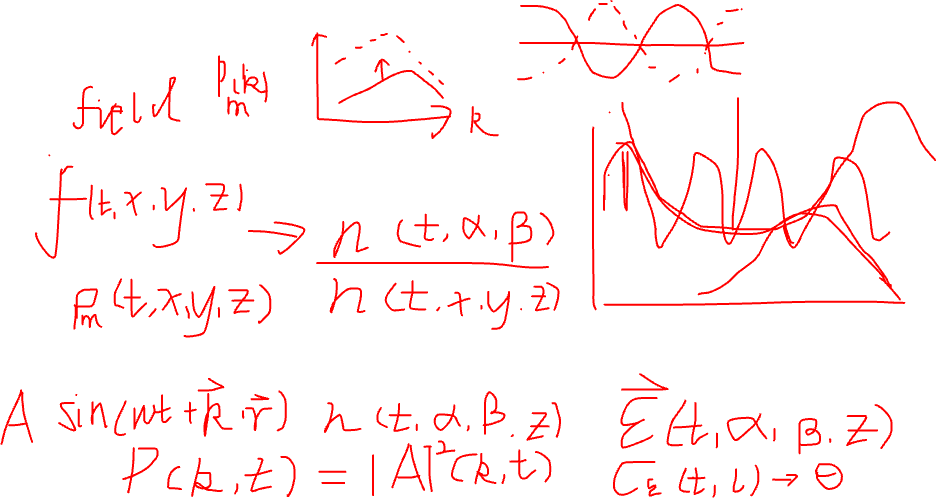 field P_m(k)
k
f(t,x.y.z)
→ n(t,α,β)
n(t,x.y.z)
ρ_m(t,x,y,z)
A sin(wt+k⃗.r⃗) n(t,α,β.z) ε⃗(t,α,β.z)
P(k,t)=|A|²(k,t) C_ε(t,l)→Θ